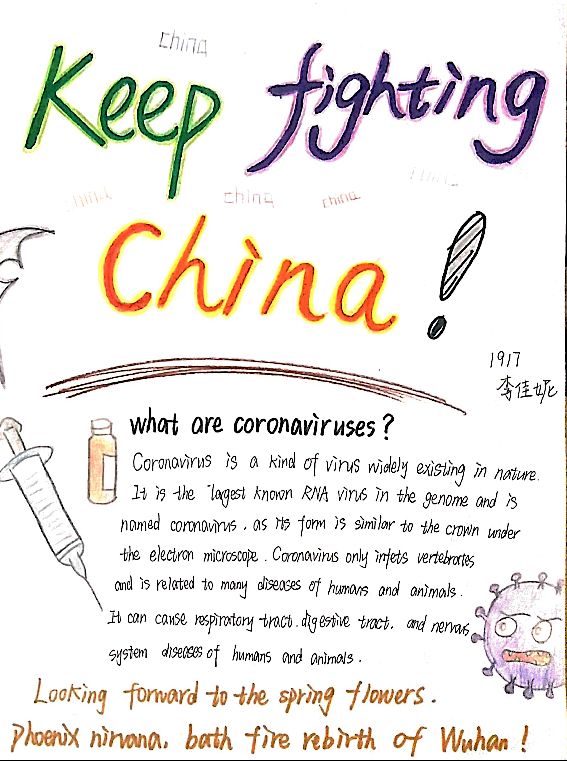 china
Keep fighting
china
china
china
china
China!
1917
李佳妮
what are coronaviruses?
Coronavirus is a kind of virus widely existing in nature.
It is the "largest known RNA virus in the genome and is
named coronavirus, as its form is similar to the crown under
the electron microscope. Coronavirus only infets vertebrates
and is related to many diseases of humans and animals.
It can cause respiratory tract, digestive tract, and nervous
system diseases of humans and animals.
Looking forward to the spring flowers.
phoenix nirvana, bath fire rebirth of Wuhan!